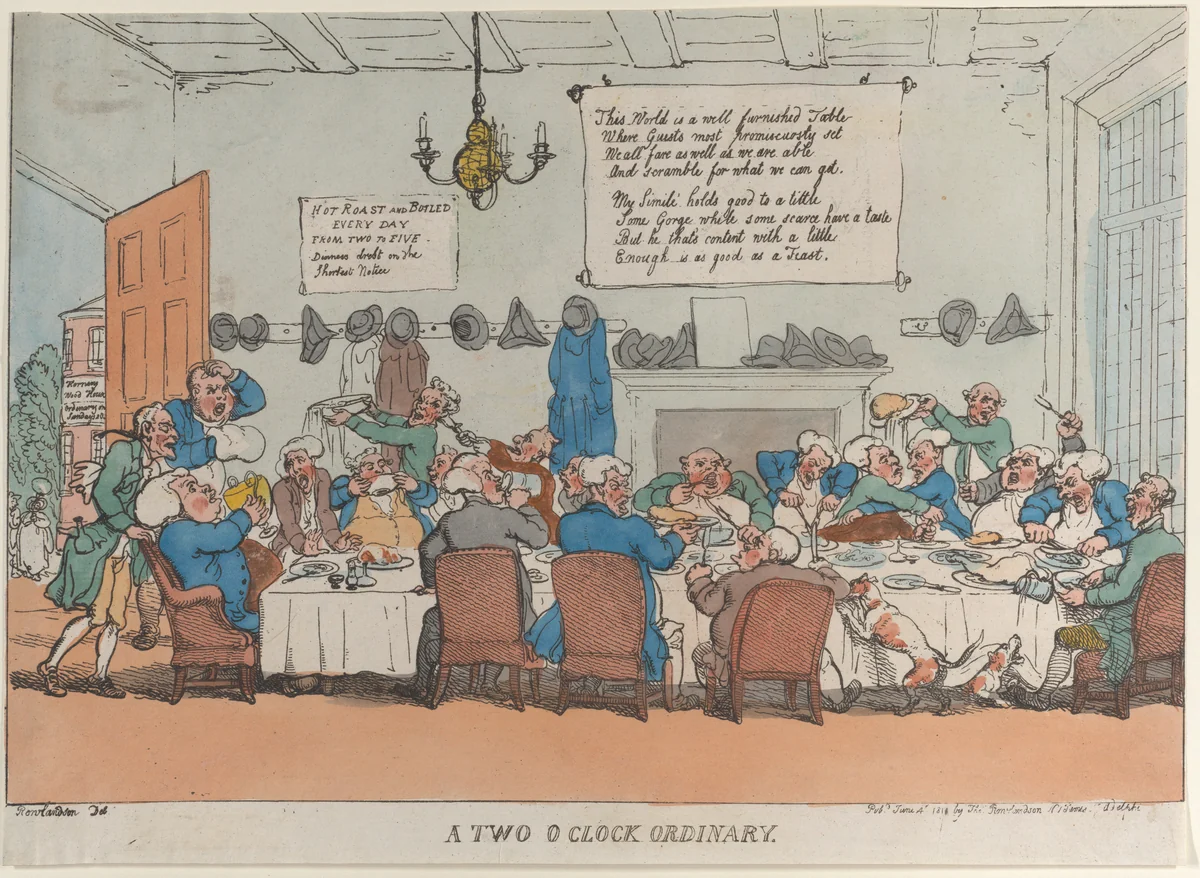 This World is a well furnished Table
Where Guests most promiscuosty set
We all fare as well as we are able
And scramble for what we can get.
My Simile holds good to a little
Some Gorge while some scarce have a taste
But he that's content with a little
Enough is as good as a Feast.
HOT ROAST AND BOILED
EVERY DAY
FROM TWO TO FIVE.
Dinners drest on the
Shortest Notice
Hornsey
Wood House
Ordinary on
Sundays
Rowlandson Del
Pubd June 4th by Thos Rowlandson N 1 James Adelphi
A TWO O CLOCK ORDINARY.